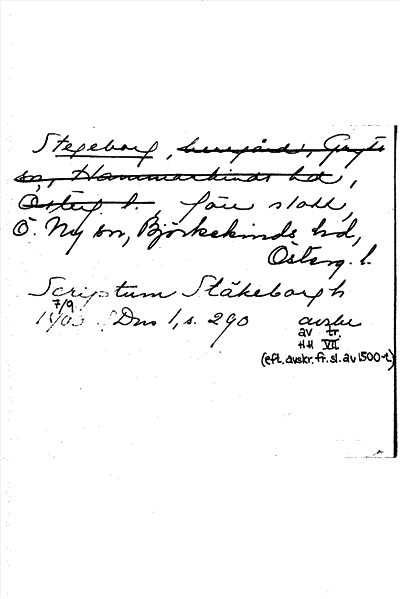 Stegeborg, herregård, Gryts
sn, Hammarkinds hd,
Österg. l., förr slott,
Ö. Ny sn, Björkekinds hd,
Österg. l.
Scriptum Stäkeborgh
7/9
1403 Dns 1, s. 290 avskr
av tr.
HH VII.
(efl. avskr. fr. sl. av 1500-t)